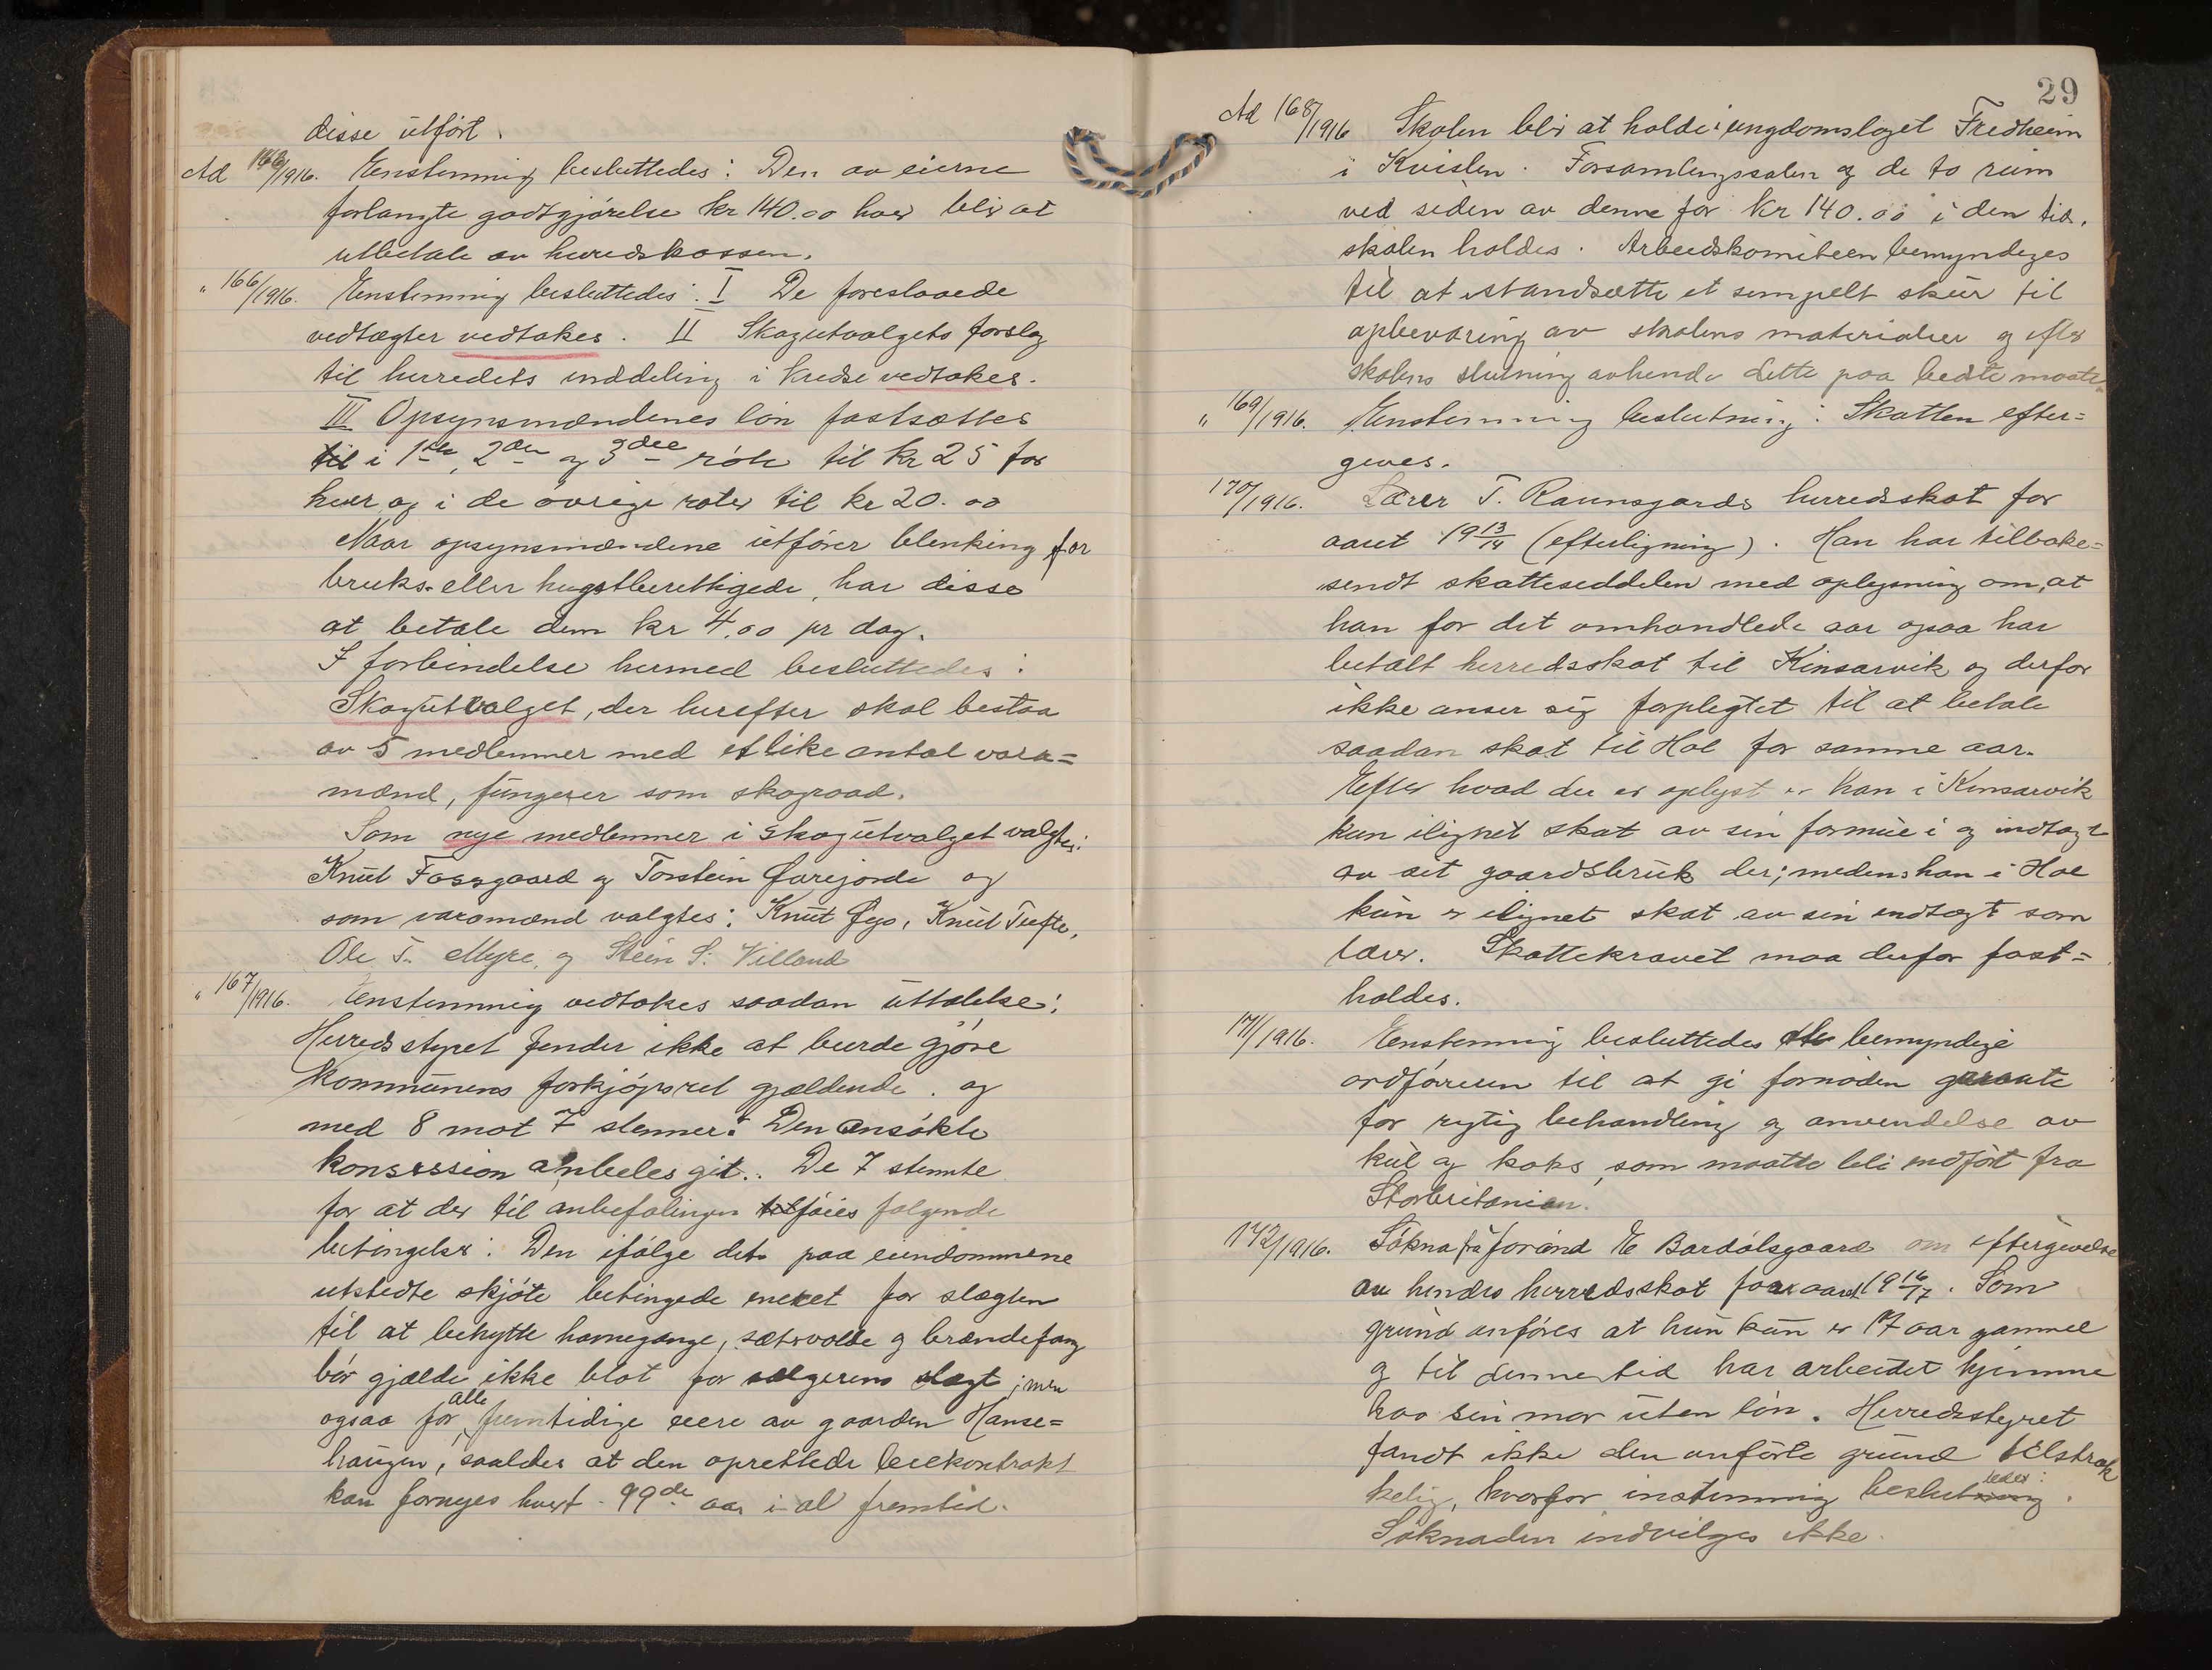 disse utført.
Ad 163/1916. Enstemmig besluttedes: Den av eierne
forlangte godtgjørelse kr 140.00 hver blir at
utbetale av herredskassen.
" 166/1916. Enstemmig besluttedes: I De foreslaaede
vedtægter vedtakes. II Skogutvalgets forslag
til herredets inddeling i kredse vedtakes.
III Opsynsmændenes løn fastsættes
til i 1ste, 2den og 3die rote til kr 25 for
hver og i de øvrige roter til kr 20.00
Naar opsynsmændene utfører blenking for
bruks- eller hugstberettigede, har disse
at betale dem kr 4.00 pr dag.
I forbindelse hermed besluttedes:
Skogutvalget, der herefter skal bestaa
av 5 medlemmer med et like antal vara=
mænd, fungerer som skograad.
Som nye medlemmer i skogutvalget valgtes:
Knut Fossgaard og Torstein Ørejorde og
som varamænd valgtes: Knut Øyo, Knut Tufte,
Ole T. Myre, og Stein S. Villand
" 167/1916. Enstemmig vedtakes saadan uttalelse:
Herredsstyret finder ikke at burde gjøre
kommunens forkjøpsret gjældende. og
med 8 mot 7 stemmer: Den ansøkte
konsession anbefales git. De 7 stemte
for at der til anbefalingen tilføies følgende
betingelse: Den ifølge det paa eiendommene
utstedte skjøte betingede eneret for slægten
til at benytte havnegange, sætervolde og brændefang
bør gjælde ikke blot for sælgerens slægt, men
ogsaa for alle fremtidige eiere av gaarden Hanse=
haugen, saaledes at den oprettede leiekontrakt
kan fornyes hvert 99de aar i al fremtid.
29
Ad 168/1916 Skolen blir at holde i ungdomslaget Fredheim
i Kvislen. Forsamlingssalen og de to rum
ved siden av denne for kr 140.00 i den tid,
skolen holdes. Arbeidskomiteen bemyndiges
til at istandsætte et simpelt skur til
opbevaring av skolens materialier og efter
skolens slutning avhende dette paa bedste maate.
" 169/1916. Enstemmig beslutning: Skatten efter=
gives.
170/1916. Lærer T. Raunsgards herredsskat for
aaret 1913/14 (efterligning). Han har tilbake=
sendt skatteseddelen med oplysning om, at
han for det omhandlede aar ogsaa har
betalt herredsskat til Kinsarvik og derfor
ikke anser sig forpligtet til at betale
saadan skat til Hol for samme aar.
Efter hvad der er oplyst er han i Kinsarvik
kun ilignet skat av sin formue i og indtægt
av sit gaardsbruk der; medens han i Hol
kun er ilignet skat av sin indtægt som
lærer. Skattekravet maa derfor fast=
holdes.
171/1916. Enstemmig besluttedes at bemyndige
ordføreren til at gi fornøden garante
for rigtig behandling og anvendelse av
kul og koks, som maatte bli indført fra
Storbritanien.
172/1916. Søknad fra Jorand E Bardølsgaard om eftergivelse
av hendes herredsskat for aaret 1916/17. Som
grund anføres at hun kun er 17 aar gammel
og til denne tid har arbeidet hjemme
hos sin mor uten løn. Herredsstyret
fandt ikke den anførte grund tilstræk
kelig, hvorfor enstemmig besluttedes:
Søknaden indvilges ikke.